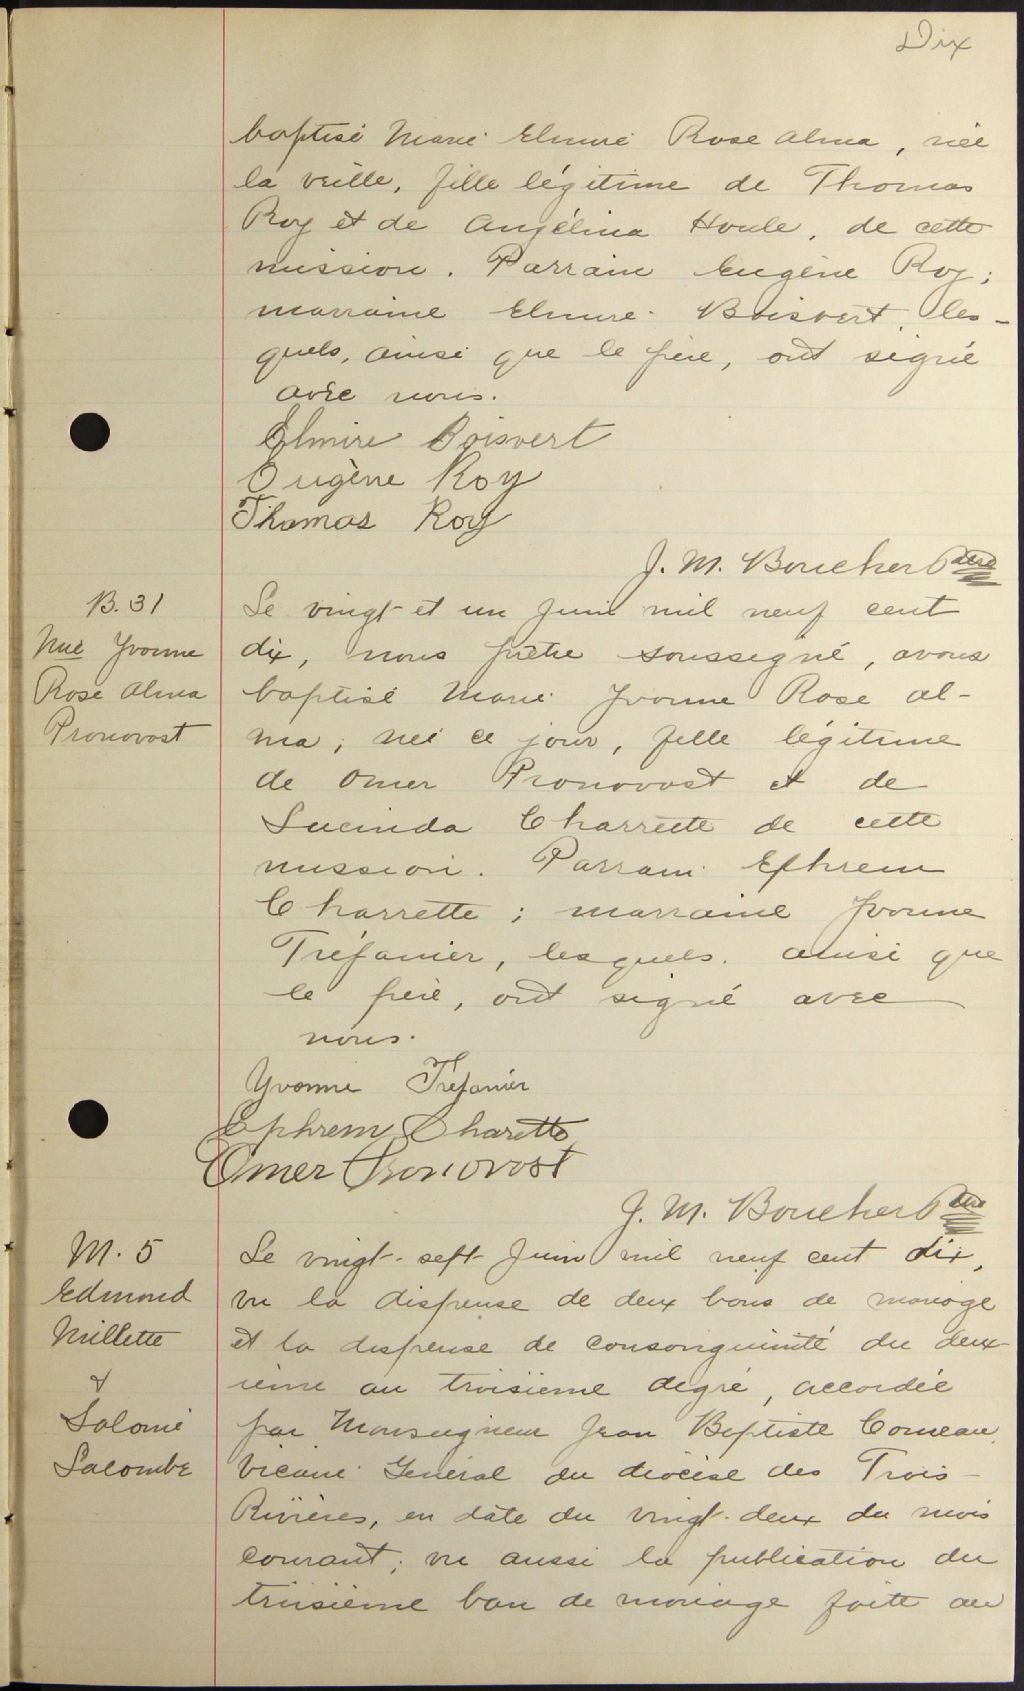 Dix
baptisé Marie Elmire Rose Alma, née
la veille, fille légitime de Thomas
Roy et de Angélina Houle, de cette
mission. Parrain Eugène Roy;
marraine Elmire Boisvert, les-
quels, ainsi que le père, ont signé
avec nous.
Elmire Boisvert
Eugène Roy
Thomas Roy
J. M. Boucher Ptre
B. 31
Mie Yvonne
Rose Alma
Pronovost
Le vingt et un Juin mil neuf cent
dix, nous prêtre soussigné, avons
baptisé Marie Yvonne Rose Al-
ma, née ce jour, fille légitime
de Omer Pronovost et de
Lucinda Charrette de cette
mission. Parrain Ephrem
Charrette; marraine Yvonne
Tréfanier, lesquels, ainsi que
le père, ont signé avec
nous.
Yvonne Tréfanier
Ephrem Charette
Omer Pronovost
J. M. Boucher Ptre
M. 5
Edmond
Millette
&
Salomé
Lacombe
Le vingt-sept Juin mil neuf cent dix,
vu la dispense de deux bans de mariage
et la dispense de consanguinité du deux-
ième au troisième degré, accordée
par Monseigneur Jean Baptiste Comeau,
Vicaire Général du diocèse des Trois-
Rivières, en date du vingt-deux du mois
courant; vu aussi la publication du
troisième ban de mariage faite au